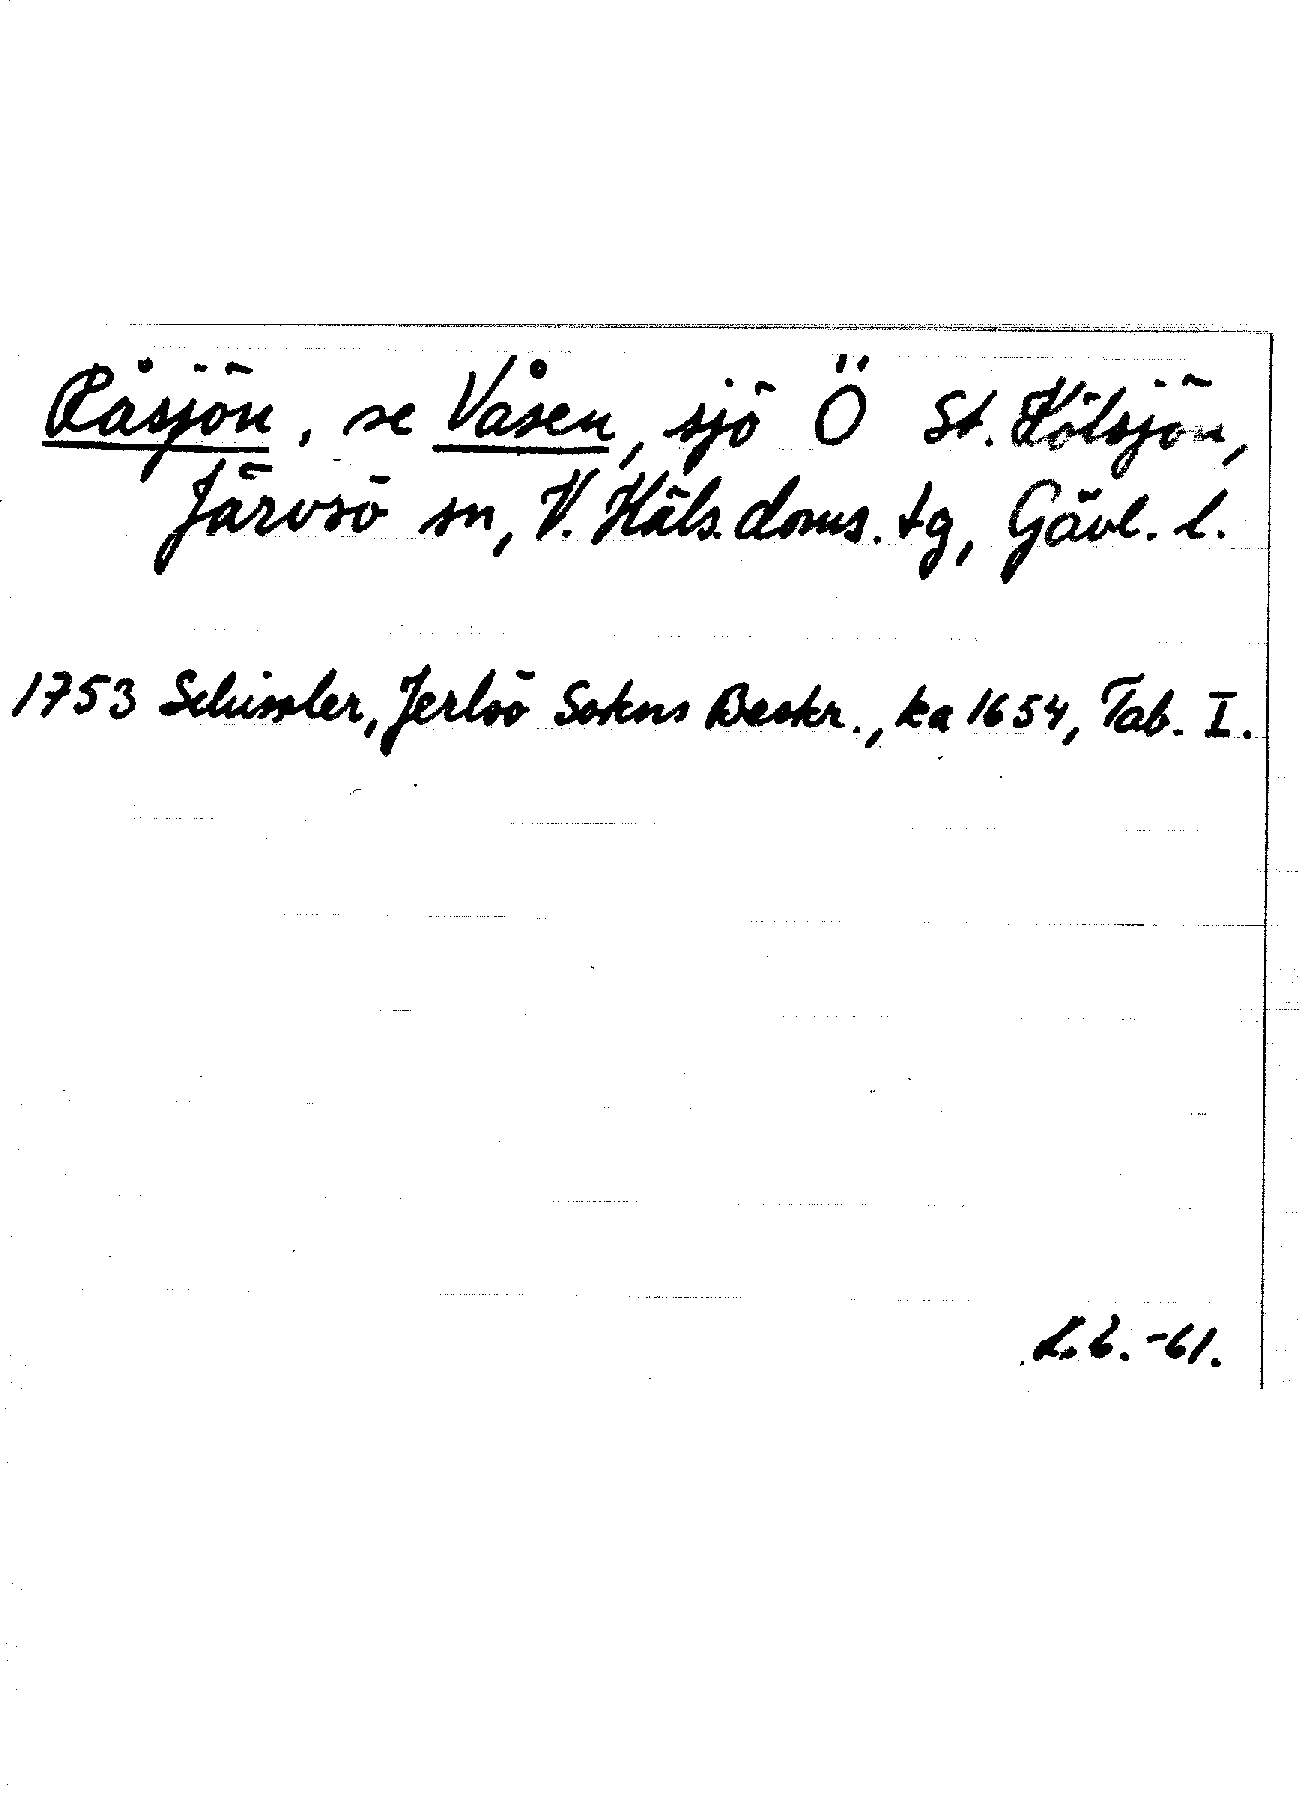 Råsjön, se Våsen, sjö Ö St. Kölsjön,
Järvsö sn, V. Häls. doms. tg, Gävl. l.
1753 Schissler, Jerlsö Sokns Beskr., ka 1654, Tab. I.
L.b. -61.